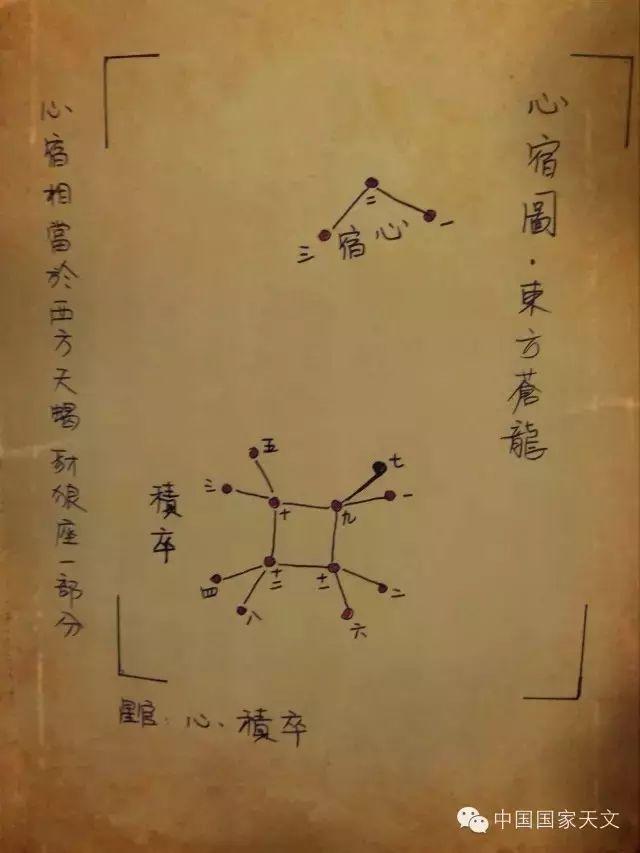 心宿圖·東方蒼龍
二
一
三
心宿
五
七
三
一
十
九
積卒
十二
十一
四
二
八
六
心宿相當於西方天蝎 豺狼座一部分
星官：心、積卒
中国国家天文